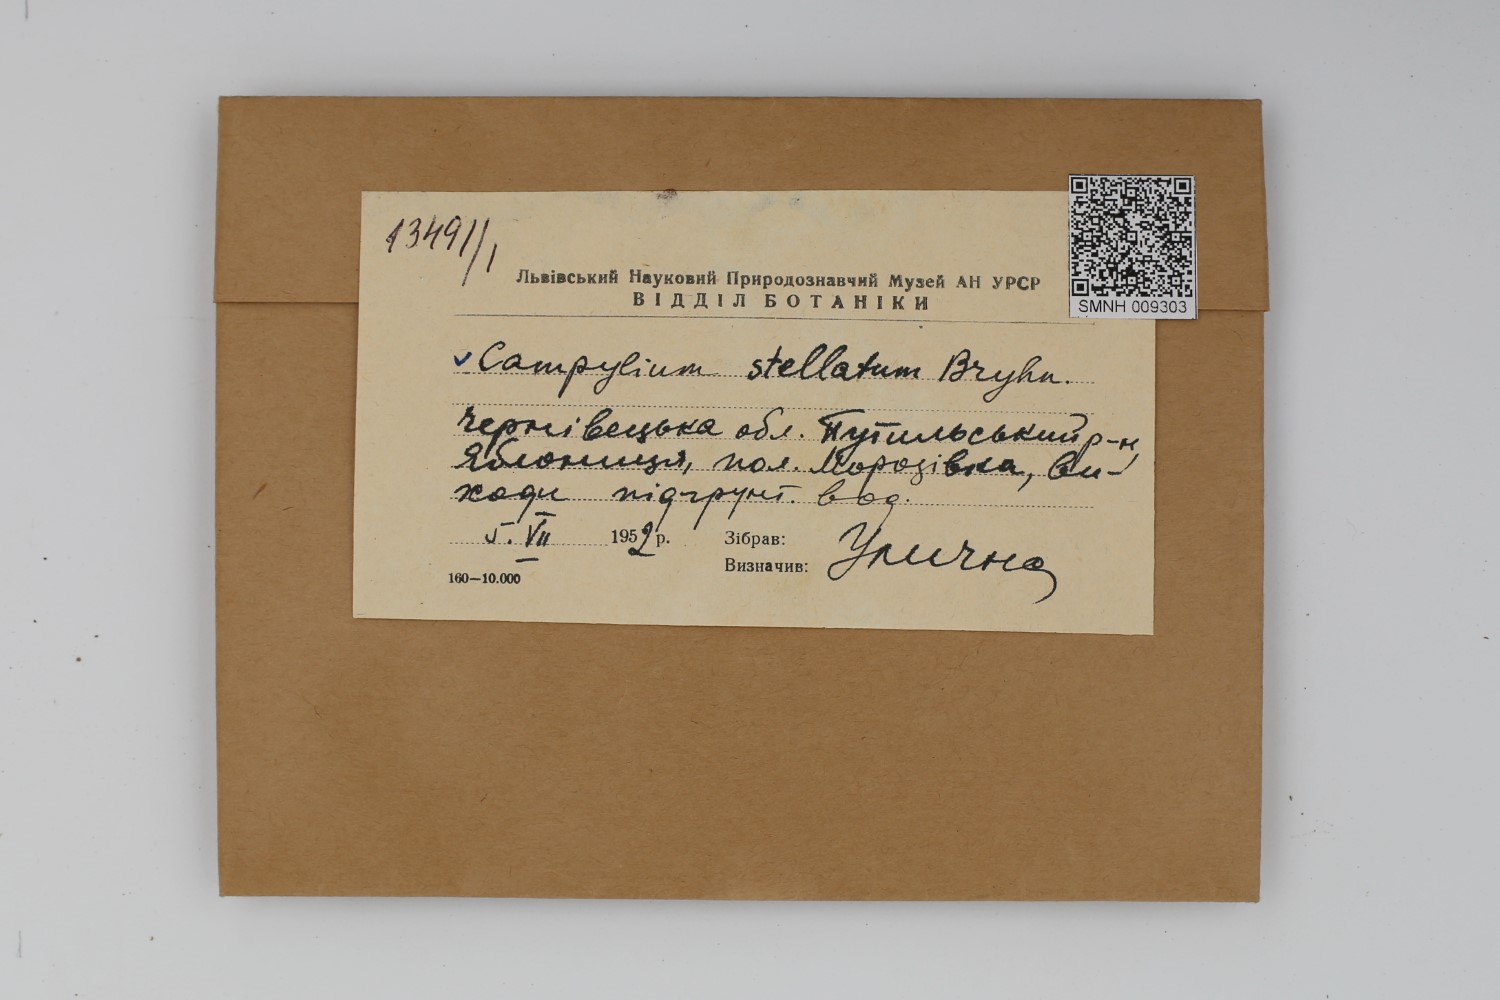 13491/1
Львівський Науковий Природознавчий Музей АН УРСР
ВІДДІЛ БОТАНІКИ
SMNH 009303
Campylium stellatum Bryhn.
Чернівецька обл. Путильський р-н,
Яблониця, пол. Морозівка, ви-
ходи підгрунт. вод.
5. VII 1952 р.
Зібрав:
Визначив: Улична
160—10.000